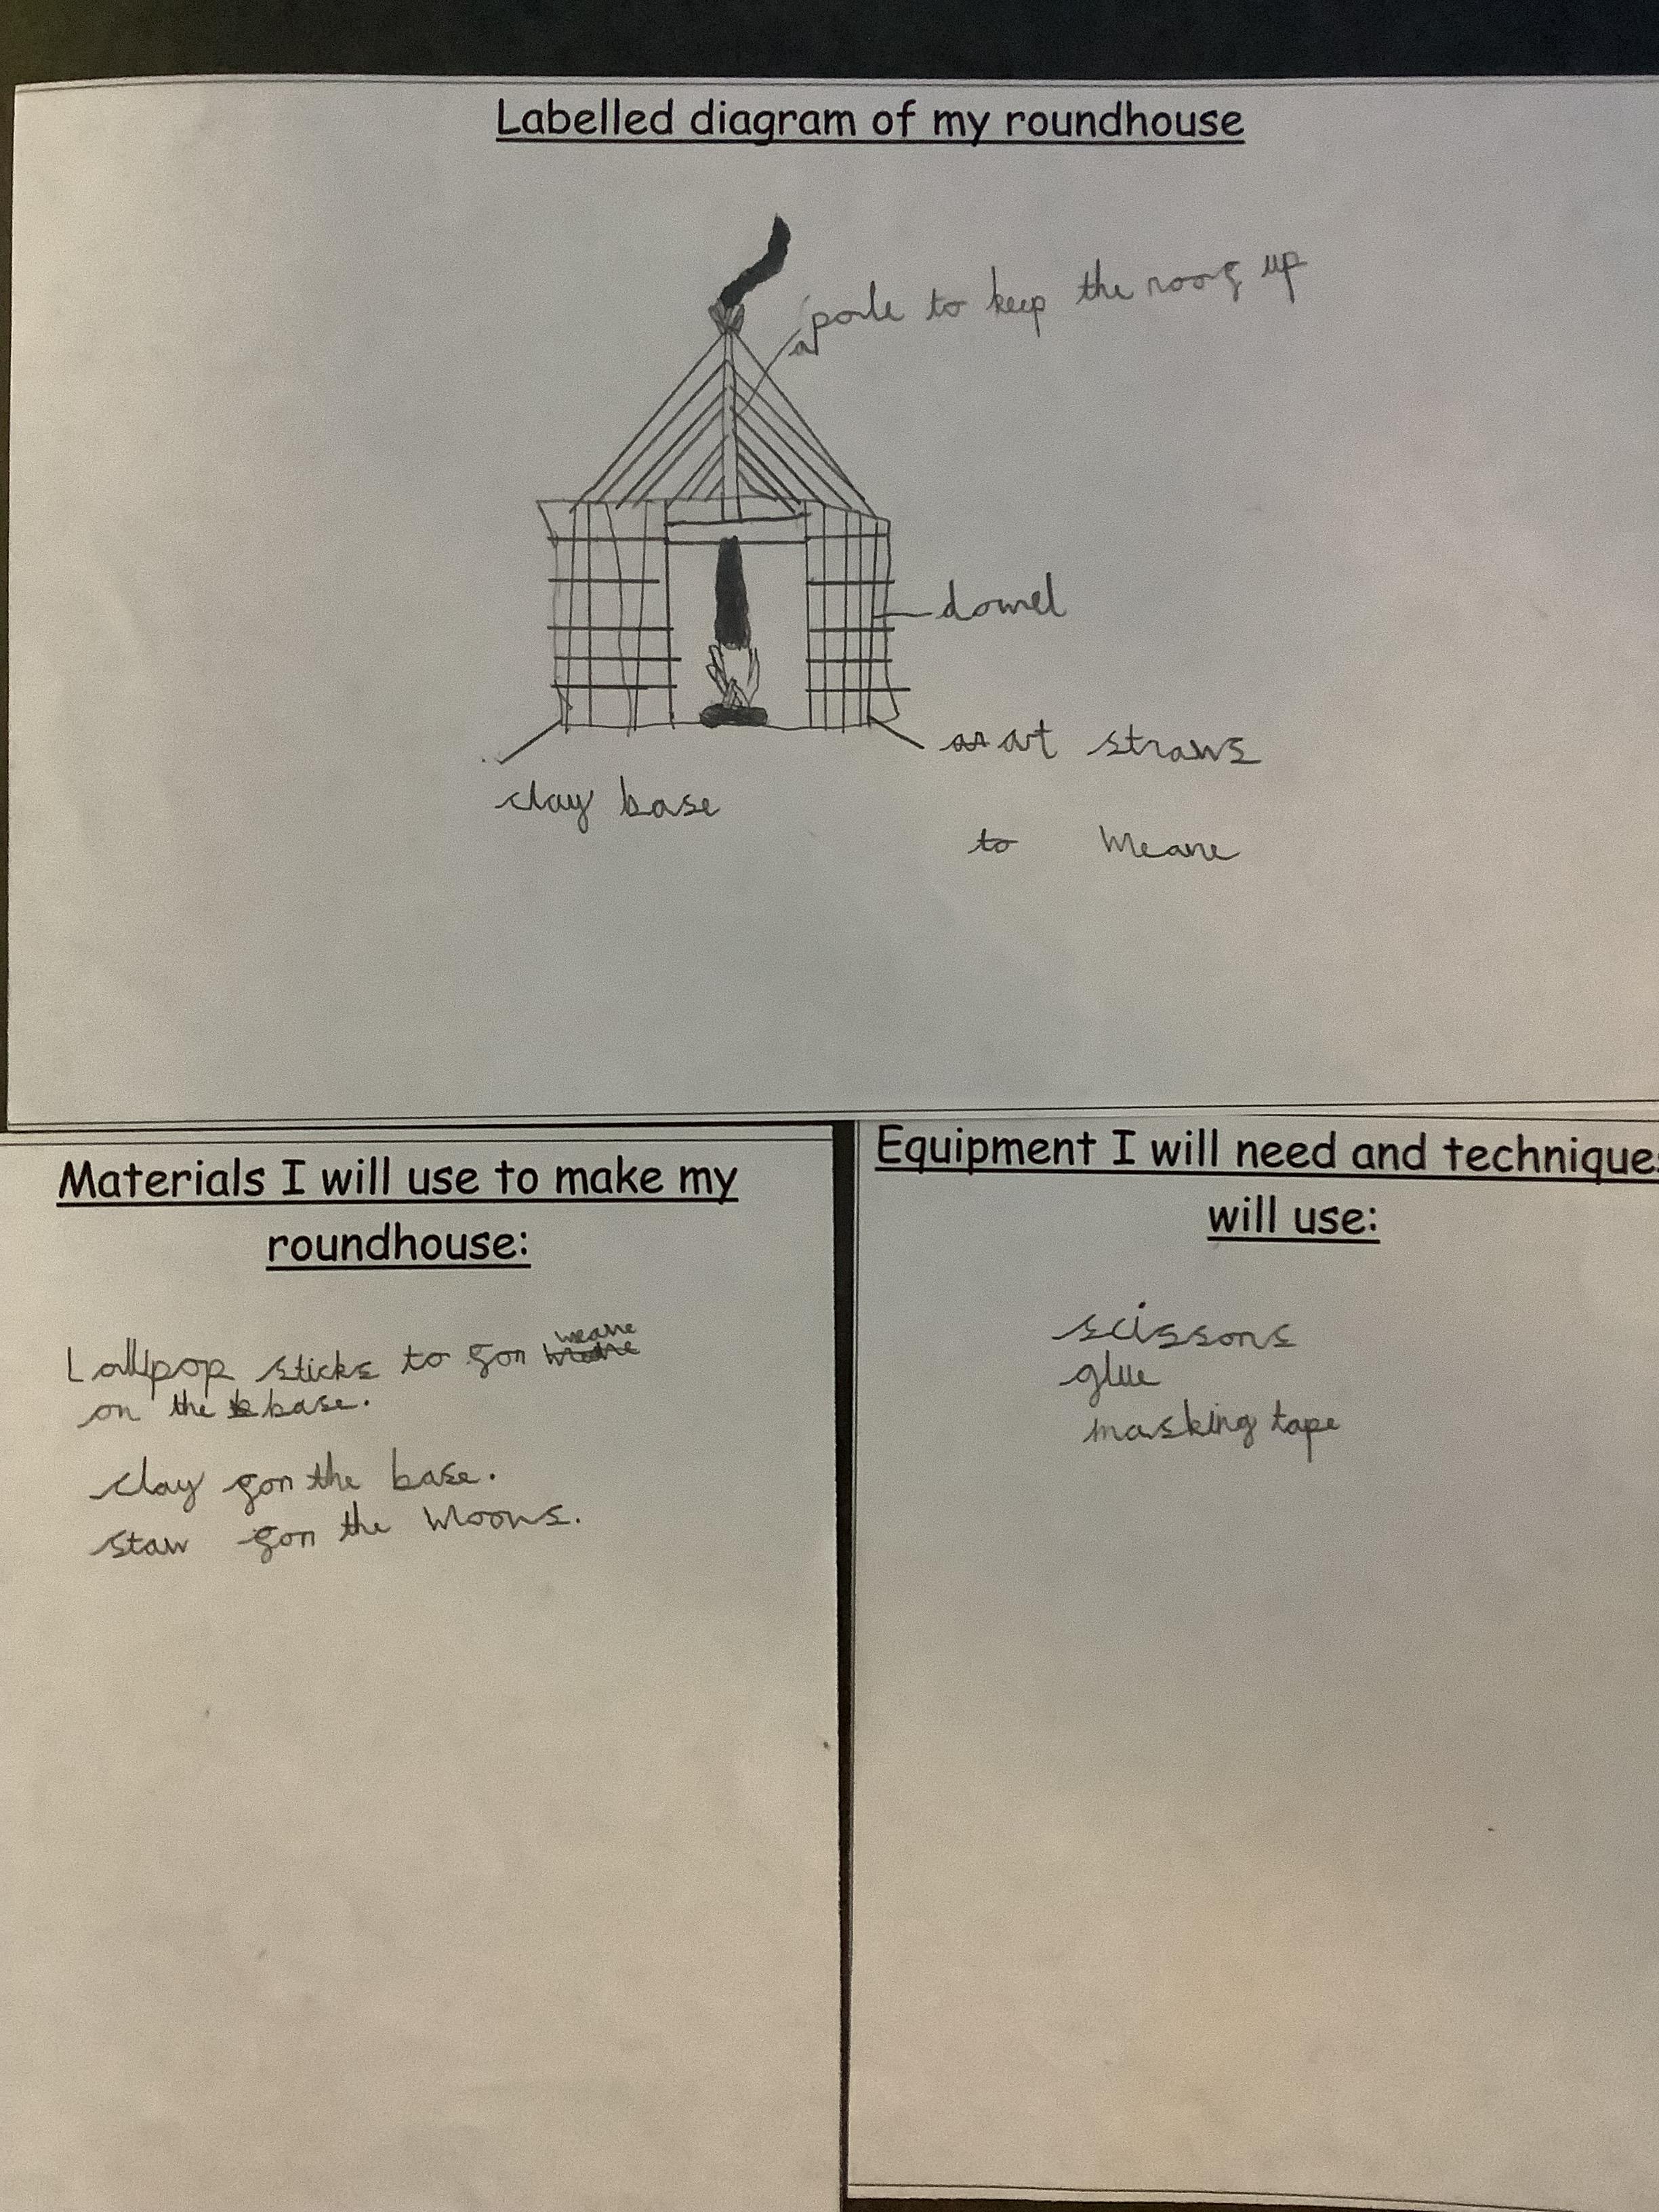 Labelled diagram of my roundhouse
a pole to keep the roof up
dowel
clay base
art straws
to weave
Materials I will use to make my
roundhouse:
Lollipop sticks to for weave
on the base.
clay for the base.
staw for the
Equipment I will need and technique
will use:
scissors
glue
masking tape